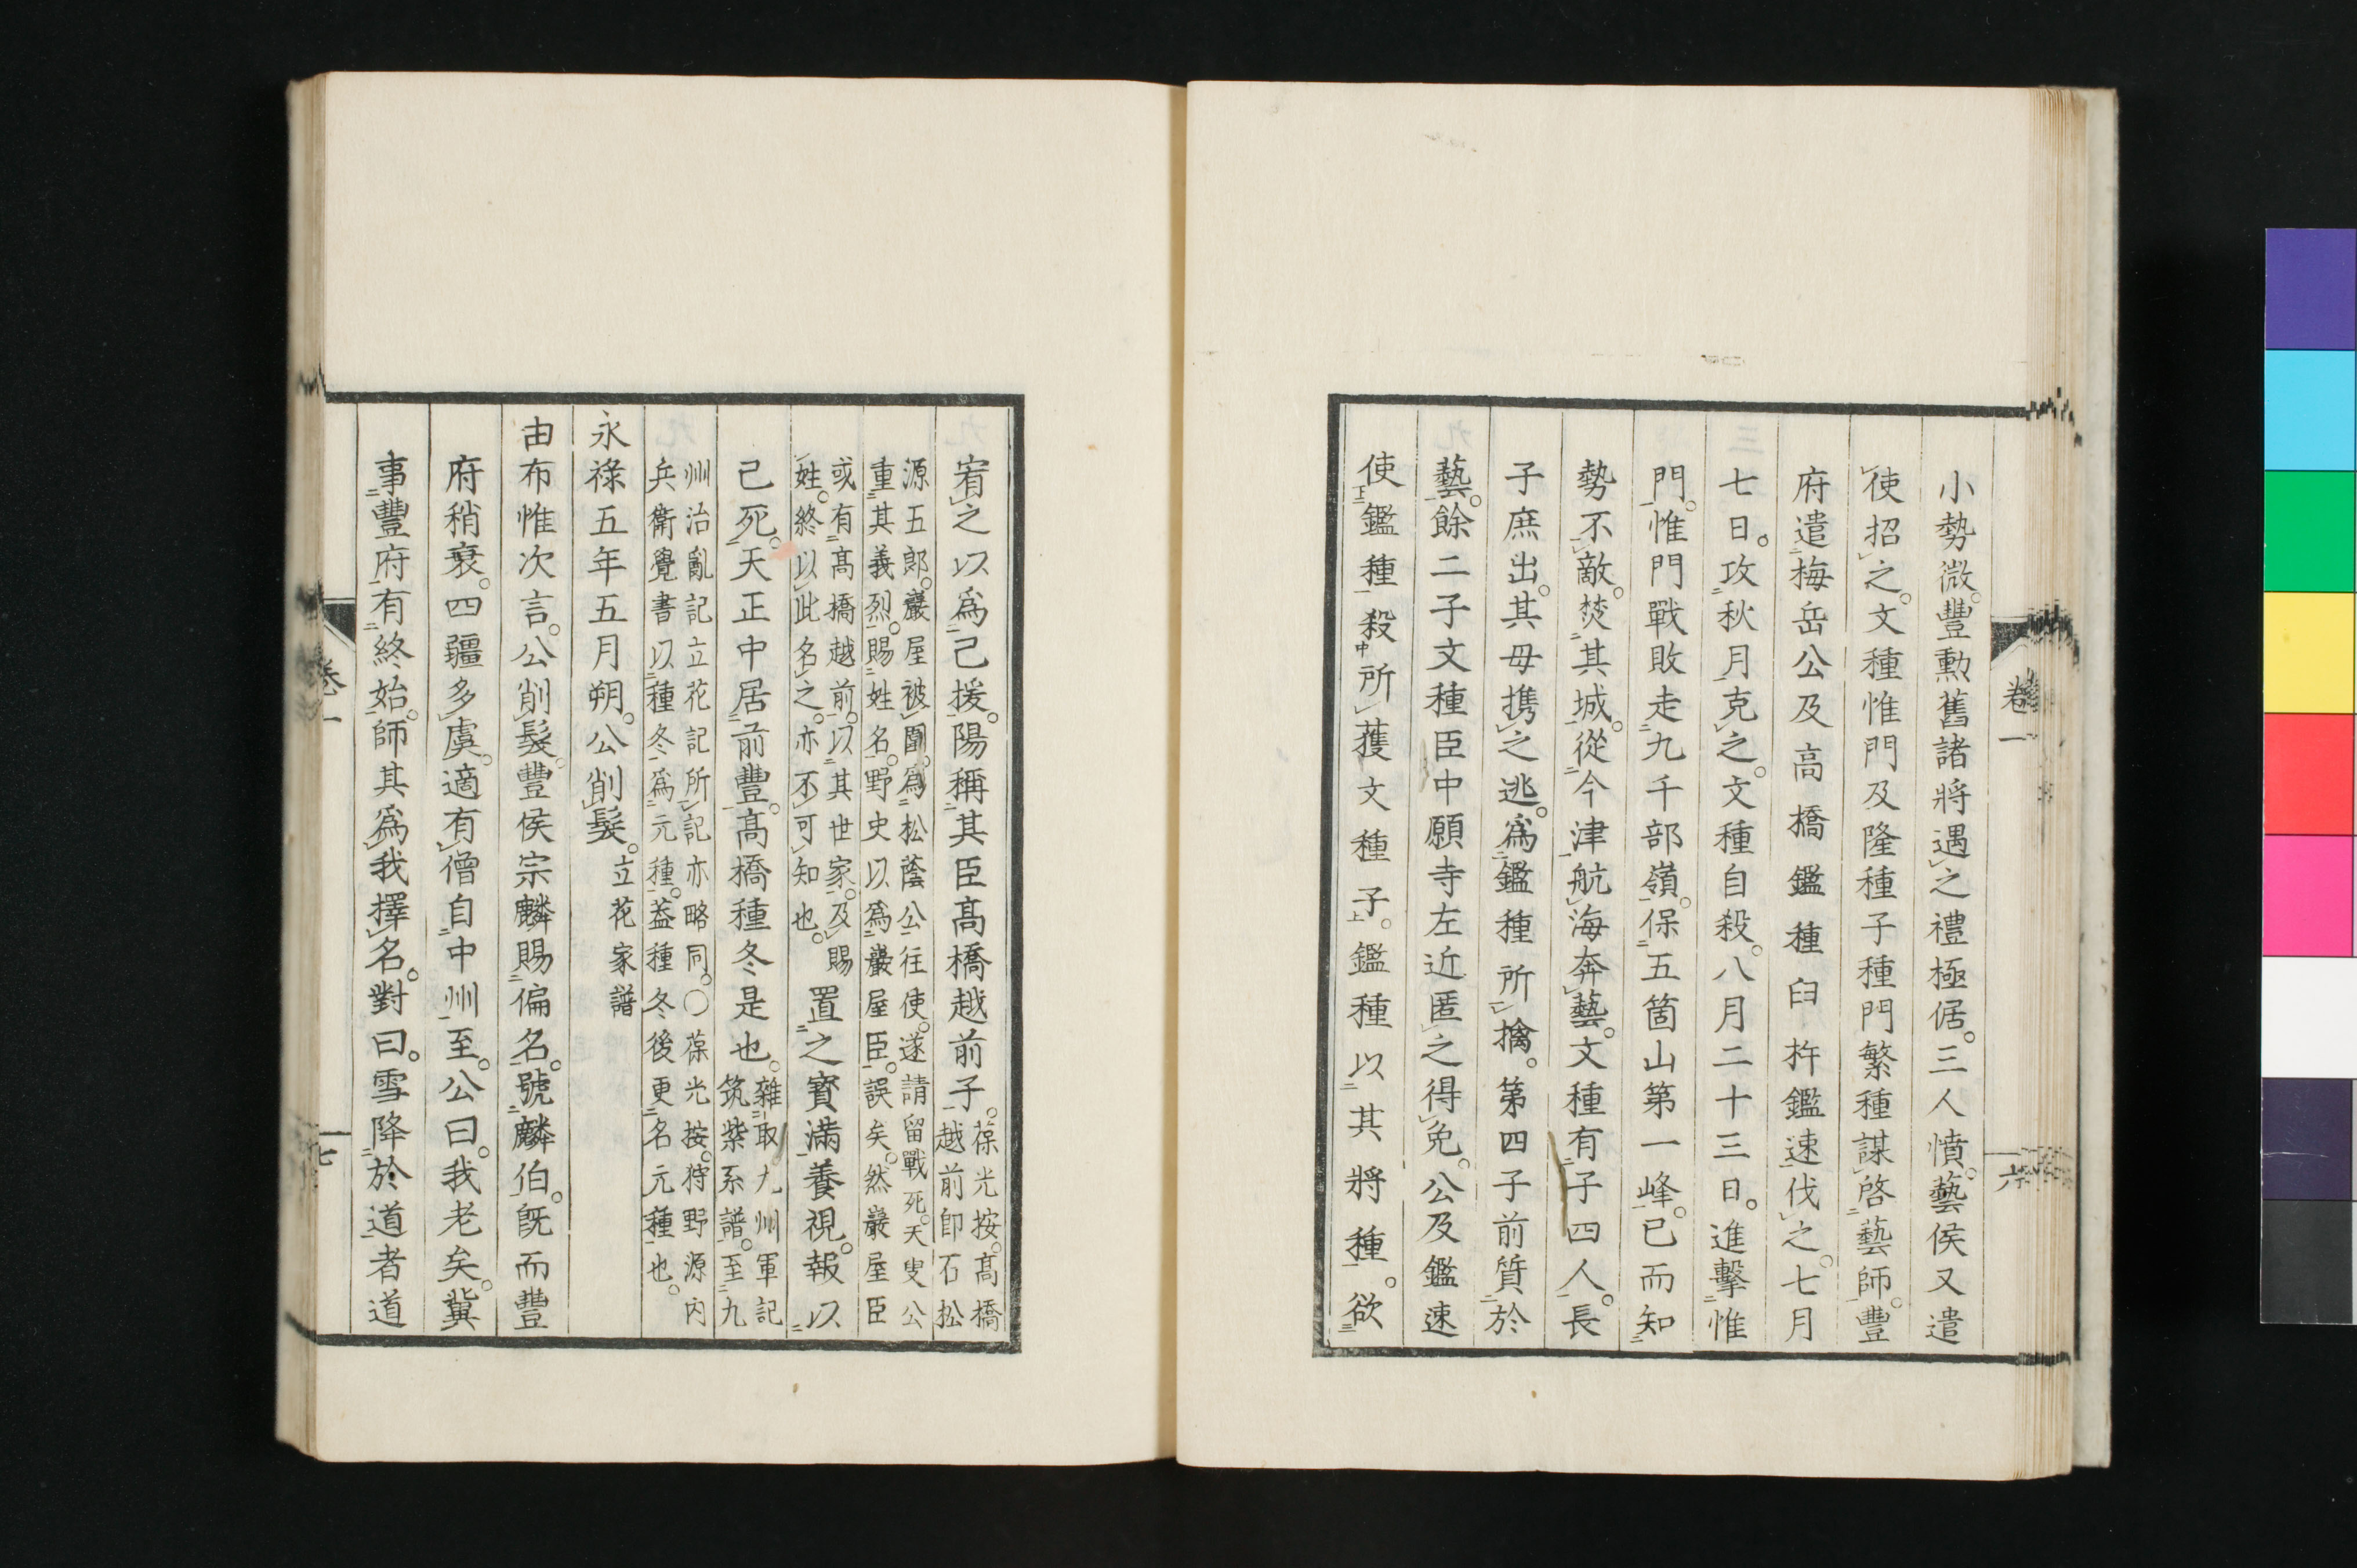 卷一
六
小勢微。豐勲舊諸將遇之禮極倨。三人憤。藝侯又遣
使招之。文種惟門及隆種子種門繁種謀啓藝師。豐
府遣梅岳公及高橋鑑種臼杵鑑速伐之。七月
七日。攻秋月克之。文種自殺。八月二十三日。進擊惟
門。惟門戰敗走九千部嶺。保五箇山第一峰。已而知
勢不敵。焚其城。從今津航海奔藝。文種有子四人。長
子庶出。其母携之逃。爲鑑種所擒。第四子前質於
藝。餘二子文種臣中願寺左近匿之得免。公及鑑速
使鑑種殺所獲文種子。鑑種以其將種。欲
宥之以爲己援。陽稱其臣髙橋越前子。
葆光按。髙橋
越前卽石松
源五郎。巖屋被圍。爲松蔭公往使。遂請留戰死。天叟公
重其義烈。賜姓名。野史以爲巖屋臣。誤矣。然巖屋臣
或有髙橋越前。以其世家。及賜
姓。終以此名之。亦不可知也。
置之寳滿養視。報以
己死。天正中居前豐。髙橋種冬是也。
雜取九州軍記
筑紫系譜。至九
州治亂記立花記所記亦略同。〇葆光按。狩野源内
兵衛覺書以種冬爲元種。葢種冬後更名元種也。
永祿五年五月朔。公削髮。立花家譜
由布惟次言。公削髮。豐侯宗麟賜偏名。號麟伯。旣而豐
府稍衰。四疆多虞。適有僧自中州至。公曰。我老矣。冀
事豐府有終始。師其爲我擇名。對曰。雪降於道者道
卷一
七